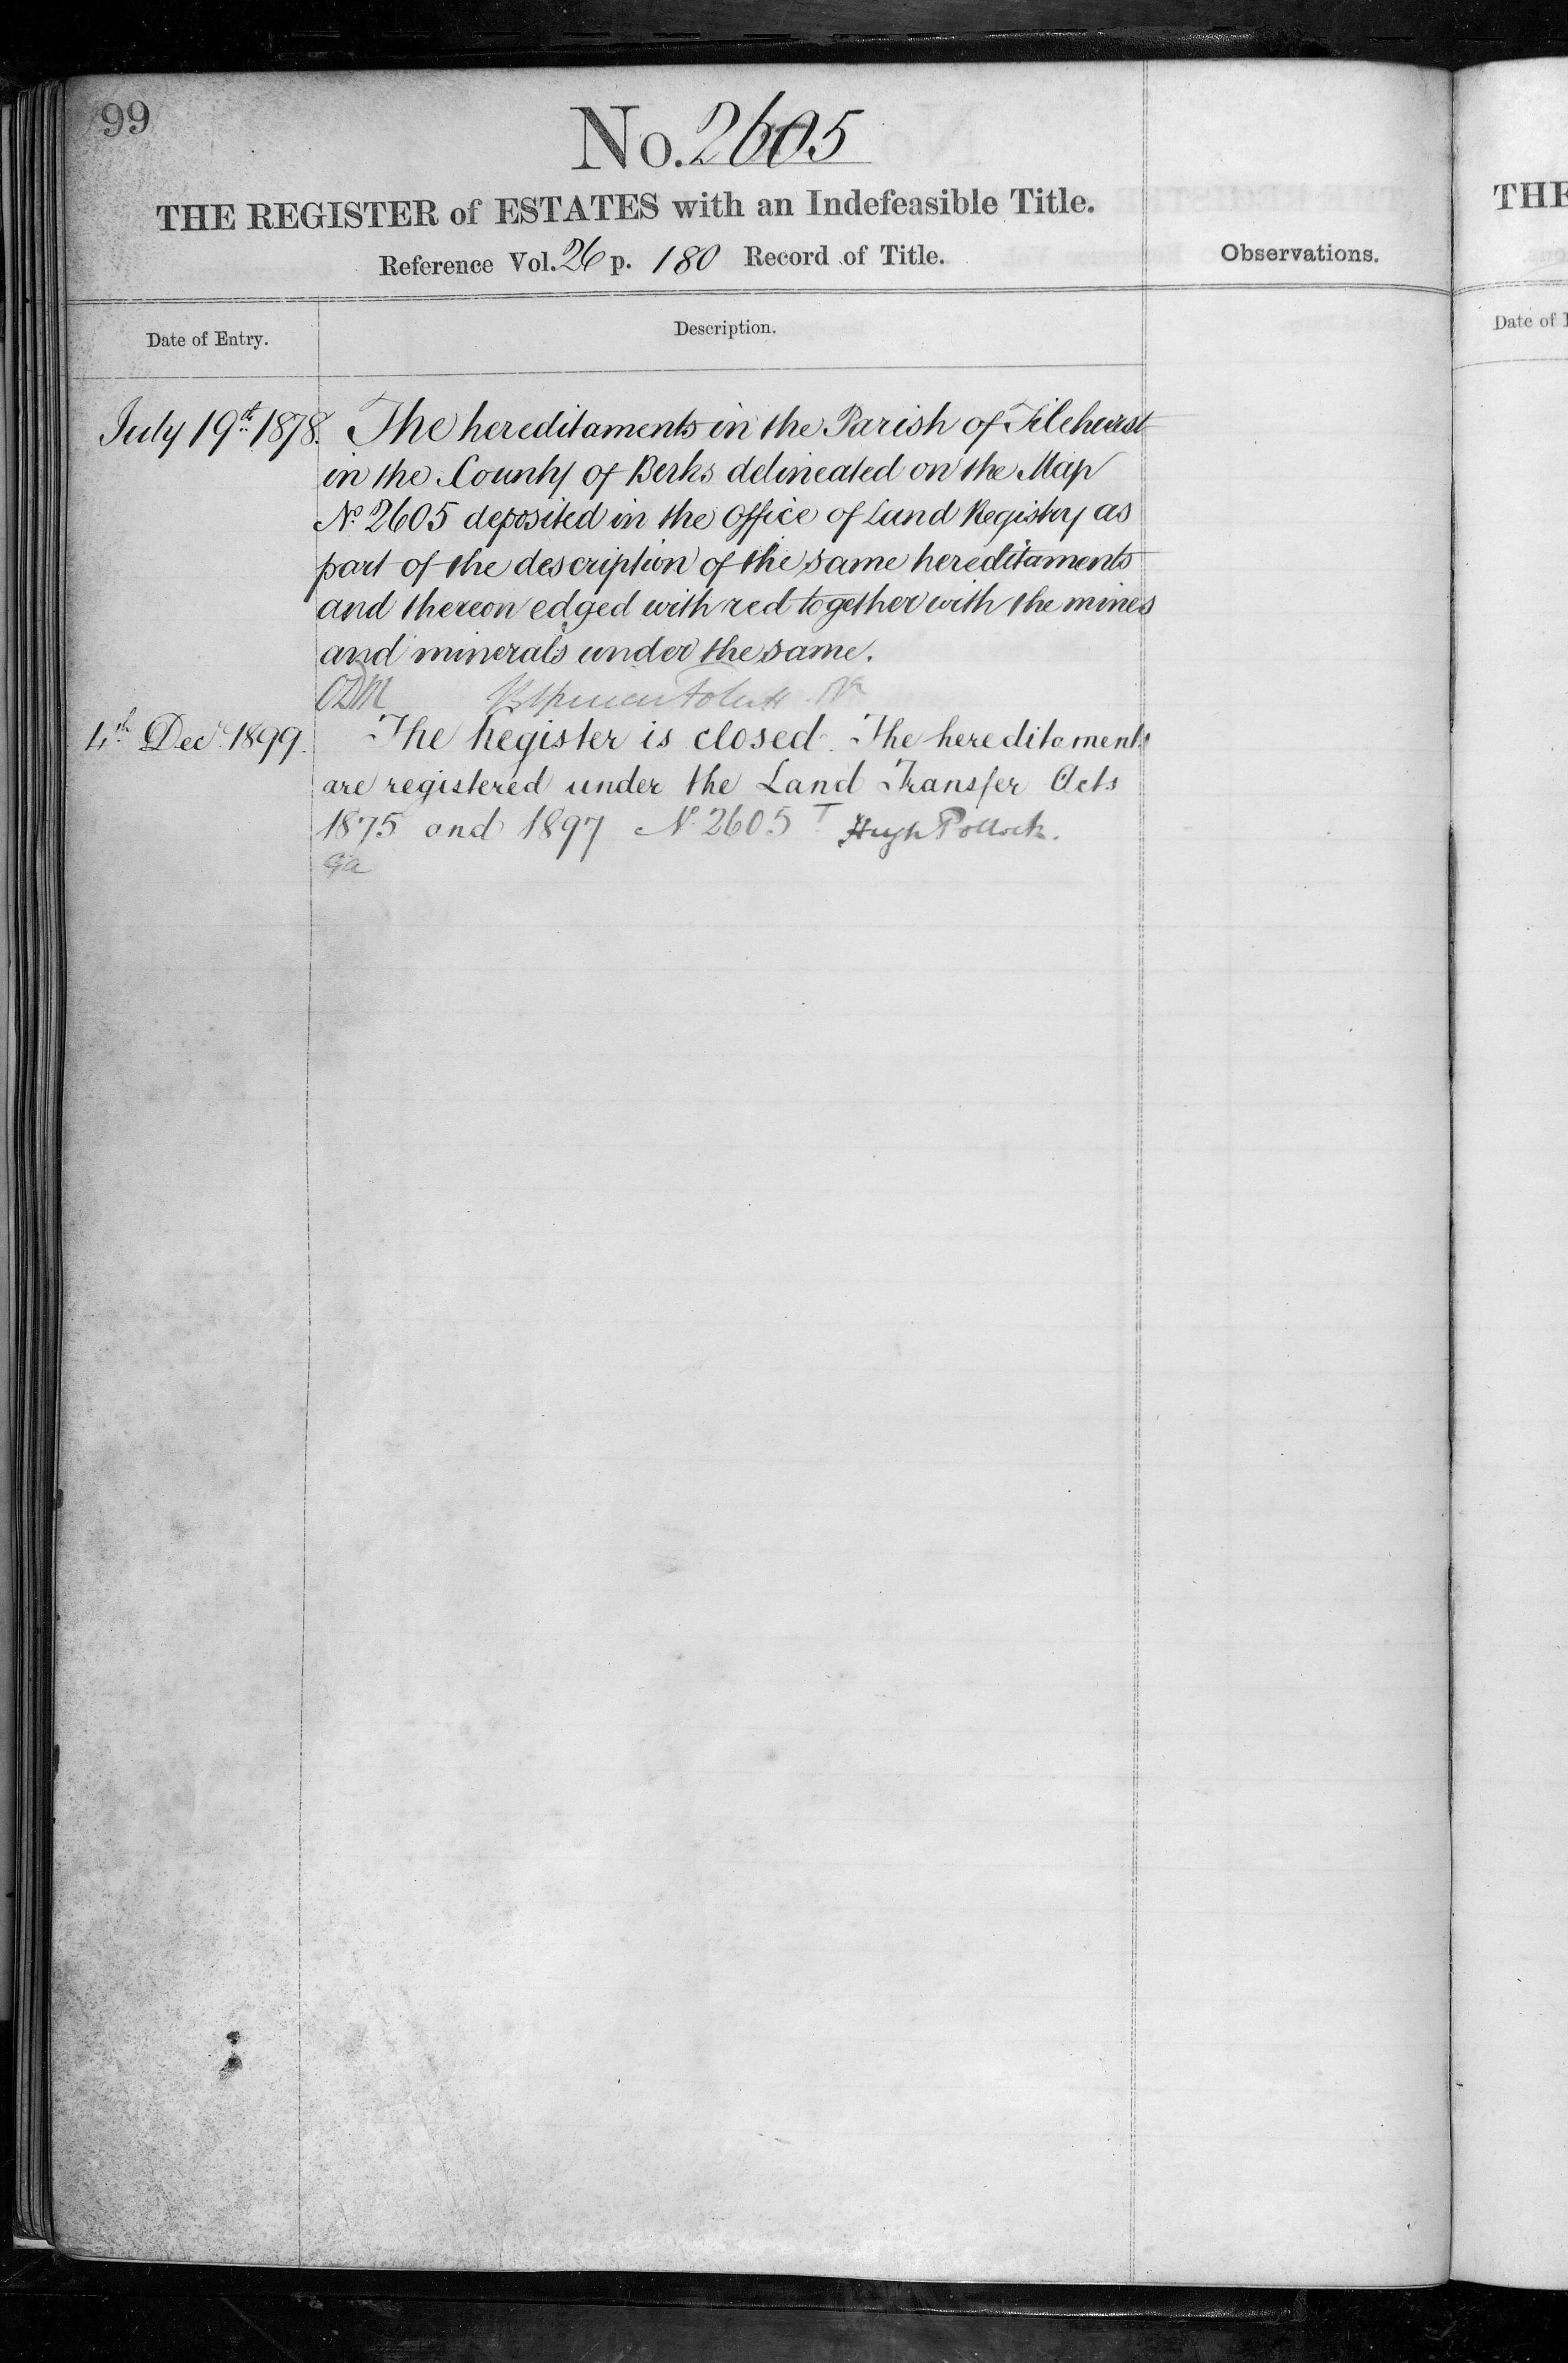 99
No. 2605
THE REGISTER of ESTATES with an Indefeasible Title.
Reference Vol. 26 p. 180 Record of Title.
Observations.
Date of Entry.
Description.
July 19th 1878. The hereditaments in the Parish of Tilehurst
in the County of Berks delineated on the Map
No. 2605 deposited in the Office of Land Registry as
part of the description of the same hereditaments
and thereon edged with red together with the mines
and minerals under the same.
4th Decr. 1899. The Register is closed. The hereditaments
are registered under the Land Transfer Acts
1875 and 1897 No. 2605 T Hugh Pollock.
THE
Date of